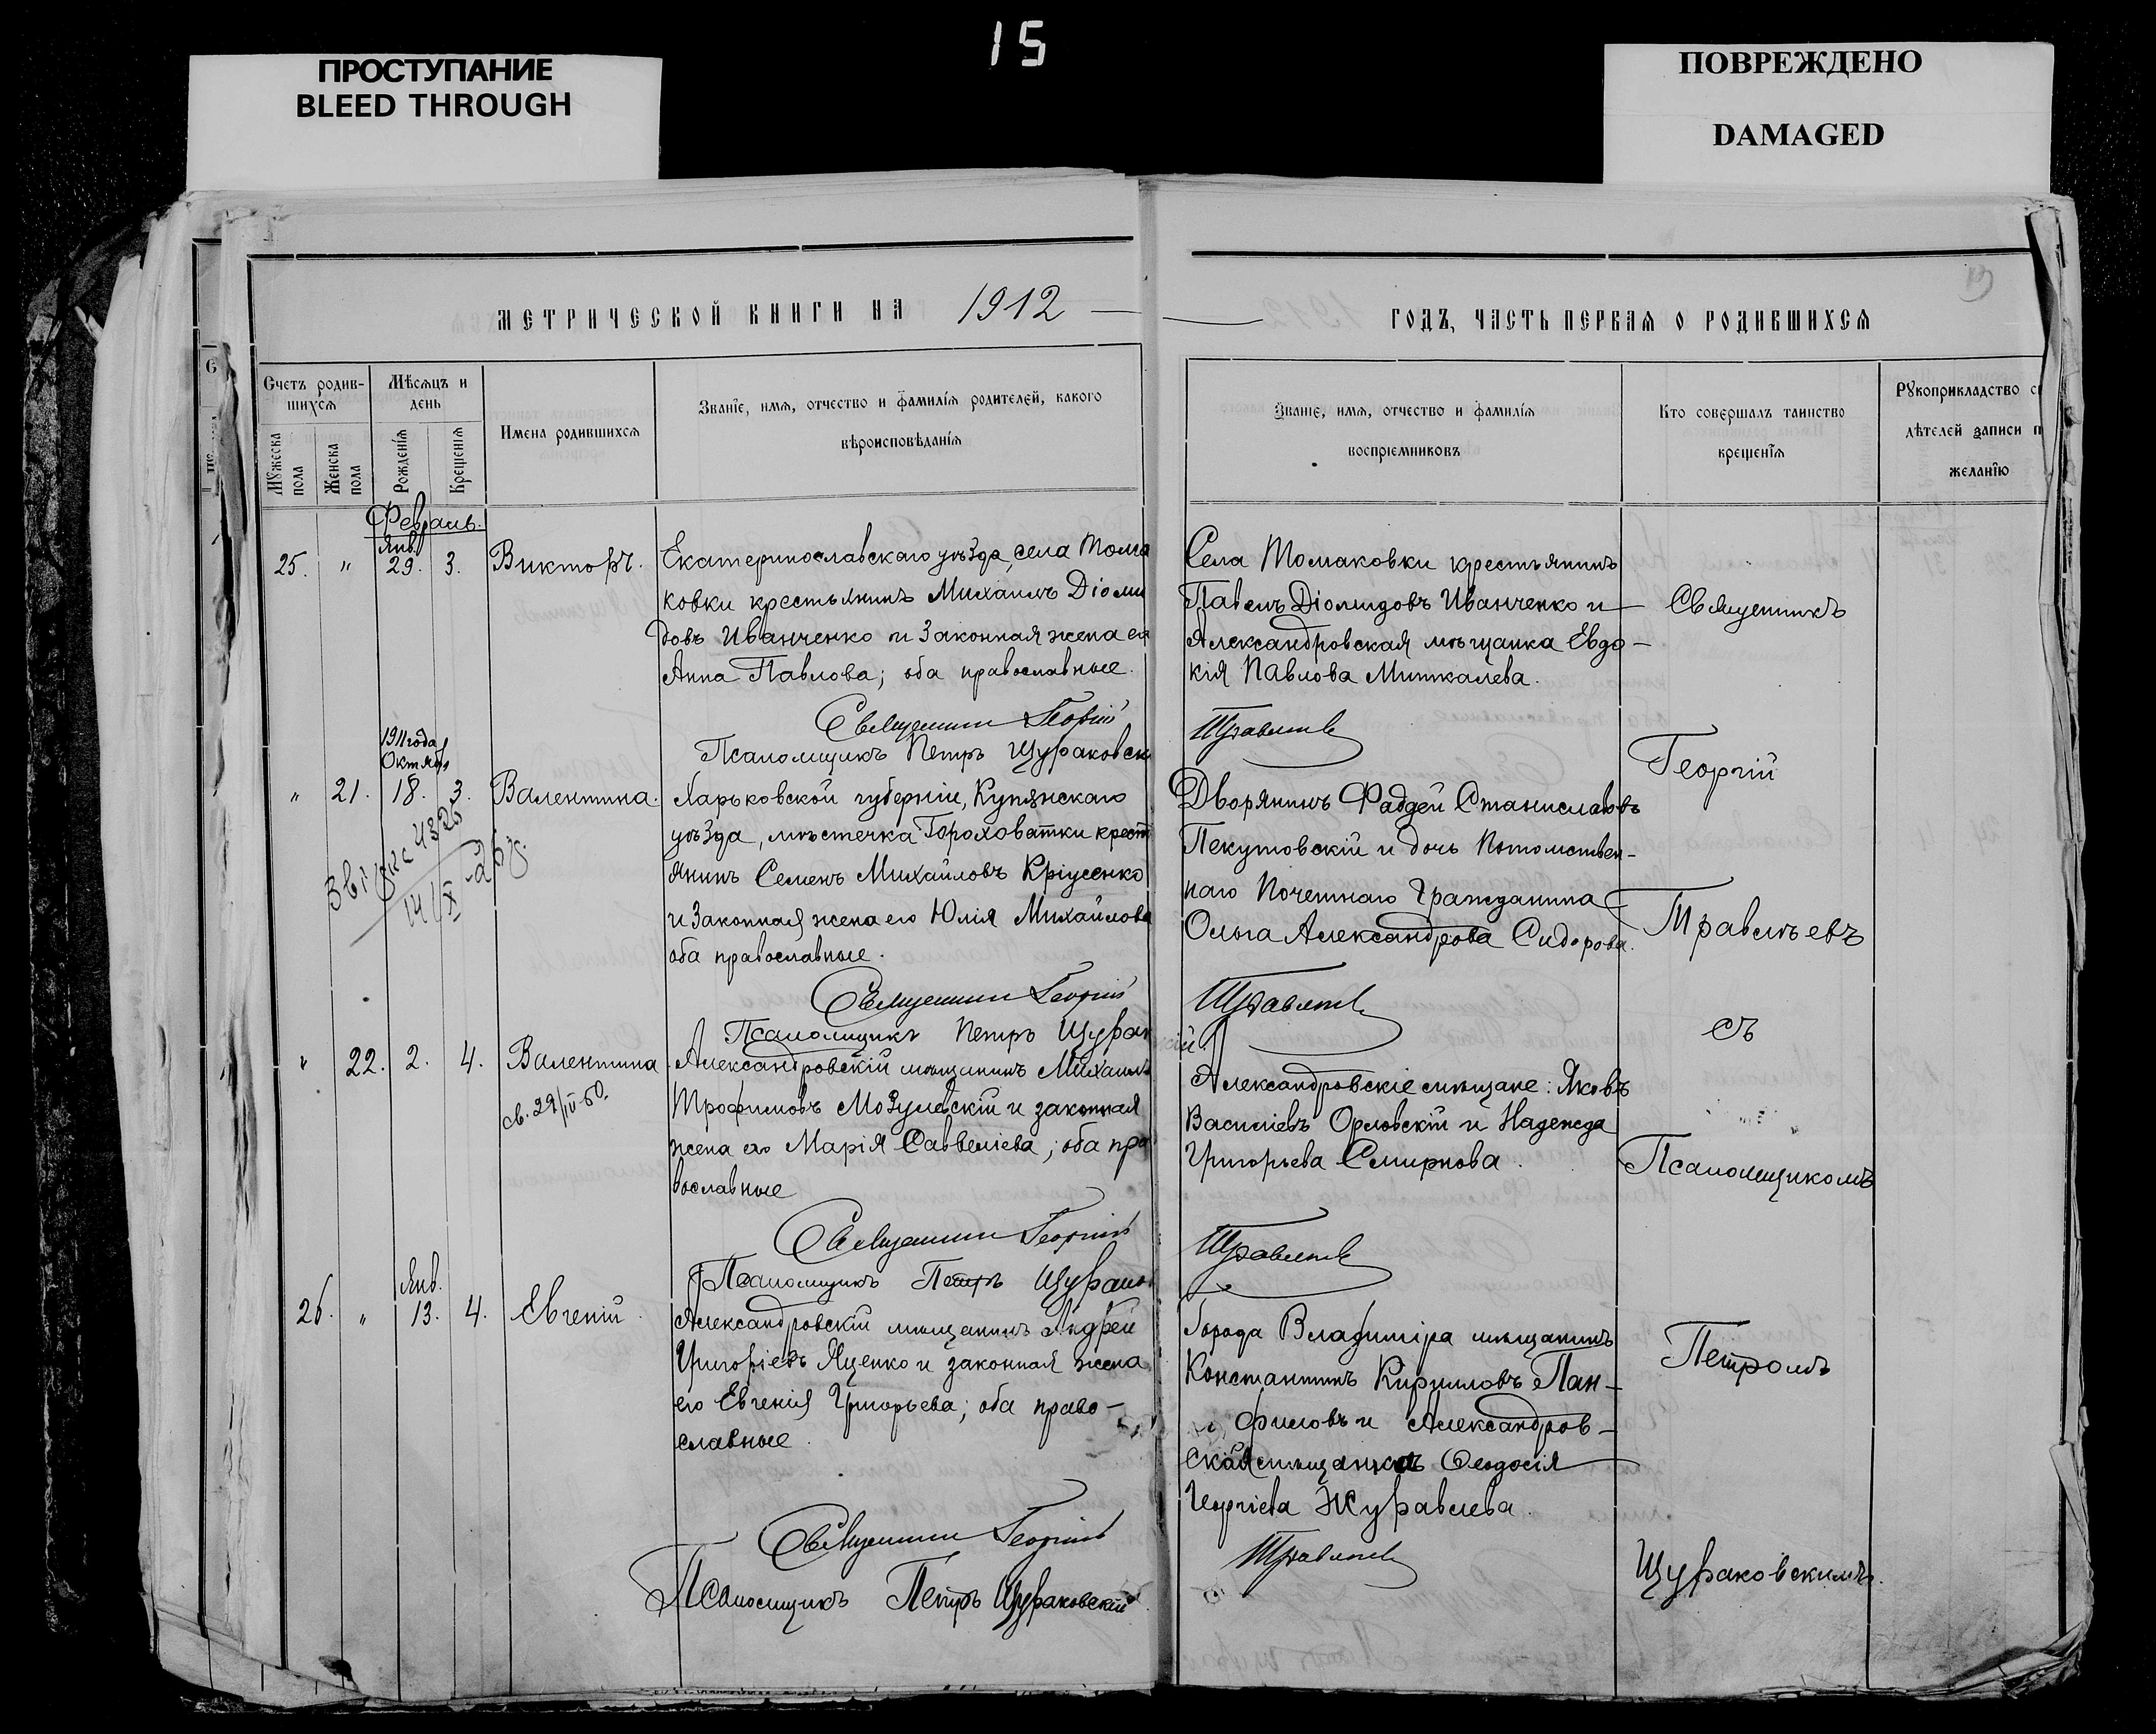 15
ПРОСТУПАНИЕ
BLEED THROUGH
ПОВРЕЖДЕНО
DAMAGED
МЕТРИЧЕСКОЙ КНИГИ НА 1912
ГОДЪ, ЧАСТЬ ПЕРВАЯ О РОДИВШИХСЯ
Счетъ родив-
шихся
Мужеска пола
Женска пола
Мѣсяцъ и
день
Рожденія
Крещенія
Имена родившихся
Званіе, имя, отчество и фамилія родителей, какого
вѣроисповѣданія
Званіе, имя, отчество и фамилія
воспріемниковъ
Кто совершалъ таинство
крещенія
Рукоприкладство
дѣтелей записи
желанію
Февраль.
Янв.
25. " 29. 3. Викторъ.
Екатеринославскаго уѣзда, села Тома
ковки крестьянинъ Михаилъ Діоми
довъ Иванченко и законная жена его
Анна Павлова; оба православные.
Священник Георгій
Псаломщикъ Петръ Щураковск
Села Томаковки крестьянинъ
Павелъ Діомидовъ Иванченко и
Александровская мѣщанка Евдо-
кія Павлова Миткалева.
Травлѣев
1911 года
Октяб
" 21. 18. 3. Валентина.
14/X
Харьковской губерніи, Купянскаго
уѣзда, мѣстечка Гороховатки крест
янинъ Семенъ Михайловъ Кріусенко
и законная жена его Юлія Михайлова
оба православные.
Священник Георгій
Псаломщикъ Петръ Щурак
Дворянинъ Фаддей Станиславовъ
Пекутовскій и дочь Потомствен-
наго Почетнаго Гражданина
Ольга Александрова Сидорова.
Травлѣев
" 22. 2. 4. Валентина
св. 29/IV-50.
Александровскій мѣщанинъ Михаилъ
Трофимовъ Мозулевскій и законная
жена его Марія Саввеліева; оба пра
вославные
Священник Георгій
Псаломщикъ Петръ Щурако
Александровскіе мѣщане: Яковъ
Василіевъ Орловскій и Надежда
Григорьева Смирнова.
Травлѣев
Янв.
26. " 13. 4. Евгеній.
Александровскій мѣщанинъ Андрей
Григоріевъ Яценко и законная жена
его Евгенія Григорьева; оба право-
славные.
Священник Георгій
Псаломщикъ Петръ Щураковскій
Города Владиміра мѣщанинъ
Константинъ Кирилловъ Пан-
филовъ и Александров-
ская мѣщанка Феодосія
Георгіева Журавлева.
Травлѣев
Священникъ
Георгій
Травлѣевъ
съ
Псаломщикомъ
Петромъ
Щураковскимъ.